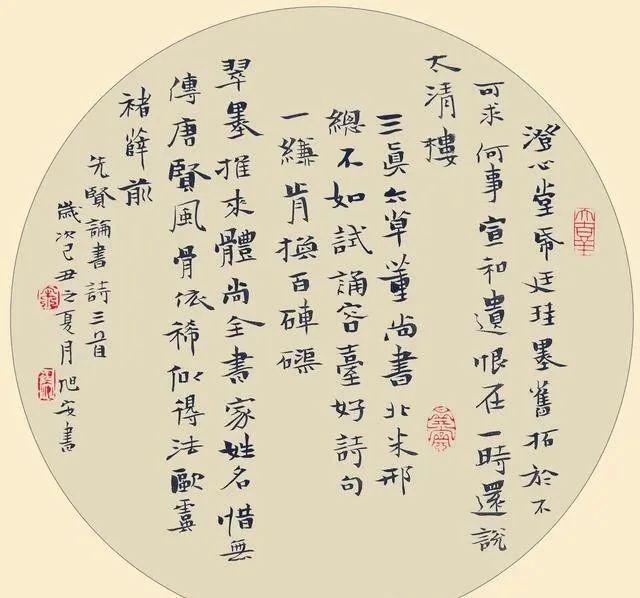 澄心堂帋廷珪墨舊拓於不
可求何事宣和遺恨在一時還說
太清樓
三真六草董尚書北米邢
總不如試誦容臺好詩句
一縑肯換百硨磲
翠墨推來體尚全書家姓名惜無
傳唐賢風骨依稀似得法歐虞
褚薛前
先賢論書詩三首
歲次己丑之夏月旭安書